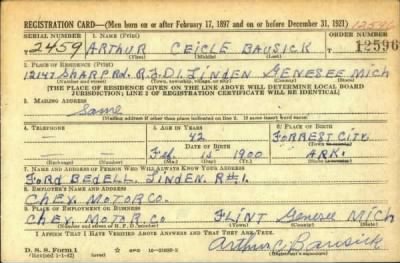 REGISTRATION CARD—(Men born on or after February 17, 1897 and on or before December 31, 1921)
SERIAL NUMBER 1. NAME (Print) ORDER NUMBER
2459 ARTHUR CEICLE BAUSICK 12596
(First) (Middle) (Last)
2. PLACE OF RESIDENCE (Print)
12147 SHARP Rd. R.F.D1. LINDEN GENESEE MICH
(Number and street) (Town, township, village, or city) (County) (State)
[THE PLACE OF RESIDENCE GIVEN ON THE LINE ABOVE WILL DETERMINE LOCAL BOARD
JURISDICTION; LINE 2 OF REGISTRATION CERTIFICATE WILL BE IDENTICAL]
3. MAILING ADDRESS
Same
(Mailing address if other than place indicated on line 2. If same insert word same)
4. TELEPHONE 5. AGE IN YEARS 6. PLACE OF BIRTH
42 FORREST CITY
DATE OF BIRTH (Town or county)
Feb. 15 1900 ARK.
(Exchange) (Number) (Mo.) (Day) (Yr.) (State or country)
7. NAME AND ADDRESS OF PERSON WHO WILL ALWAYS KNOW YOUR ADDRESS
FORD BEDELL LINDEN. R#1.
8. EMPLOYER'S NAME AND ADDRESS
CHEV. MOTOR CO.
9. PLACE OF EMPLOYMENT OR BUSINESS
CHEV. MOTOR. CO FLINT Genesee MICH
(Number and street or R. F. D. number) (Town) (County) (State)
I AFFIRM THAT I HAVE VERIFIED ABOVE ANSWERS AND THAT THEY ARE TRUE.
D. S. S. Form 1
(Revised 1-1-42) Arthur C Bausick